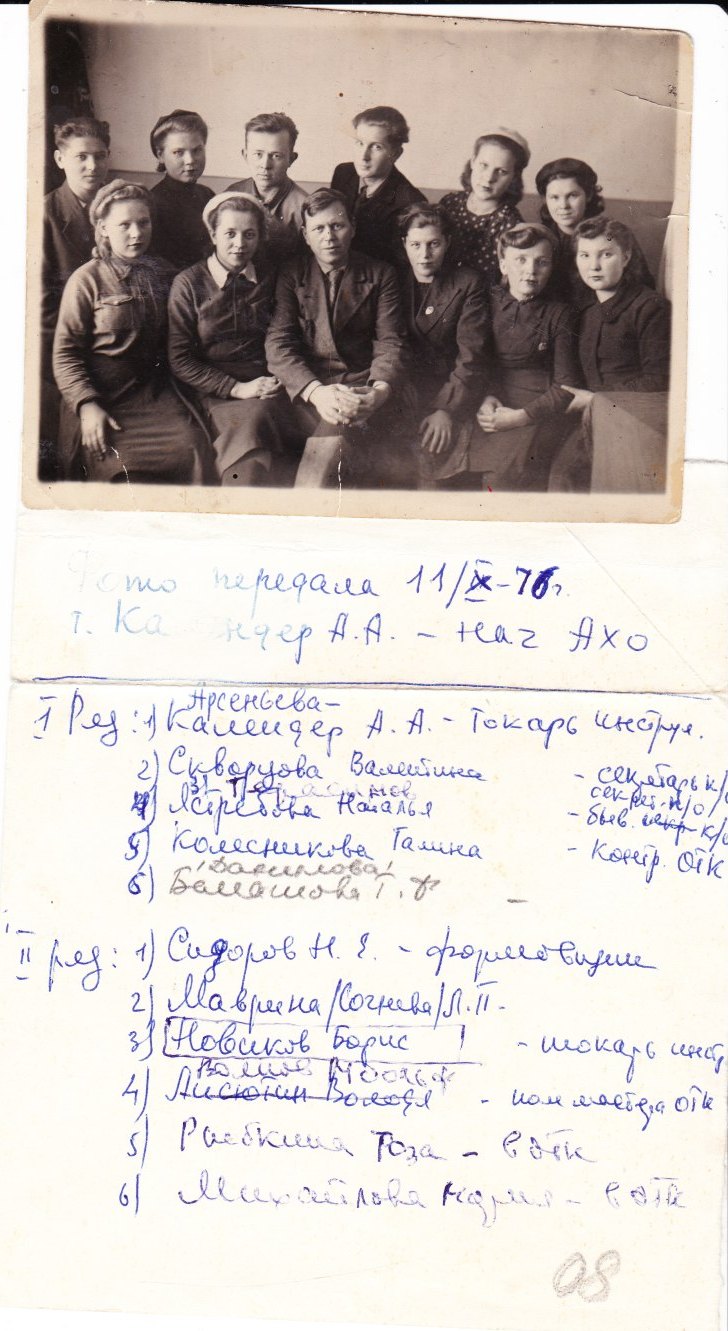 Фото передала 11/X-76г.
т. Календер А.А. – нач АХО
Арсеньева-
I Ряд: 1) Календер А.А. – Токарь инструм.
2) Скворцова Валентина – секретарь к/о
3) Герасимов секрет. к/о
4) Ястребова Наталья – бывш. секр к/о
5) Колесникова Галина – контр. ОТК
/Данилова/
6) Балашова Г.Ф –
II ряд: 1) Сидоров Н.Е. – формовщик
2) Маврина /Сочнева/ Л.П.
3) Новиков Борис – токарь инстр
Волков
4) Ансютин Володя – пом мастера ОТК
5) Рыбкина Роза – в ОТК
6) Михайлова Мария – в ОТК
08